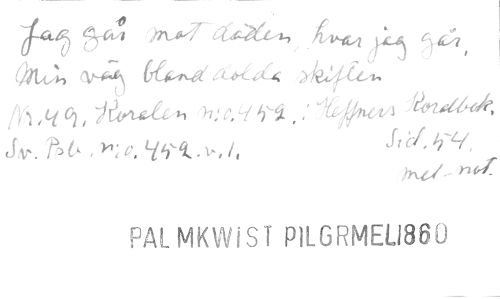 Jag går mot döden, hvar jag går,
Min väg bland dolda skiften
Nr. 49. Koralen n:o. 459. i Heffners Koralbok.
Sv. Psb. n:o. 459. v. 1. Sid. 54.
mel-not.
PALMKWIST PILGRMEL1860